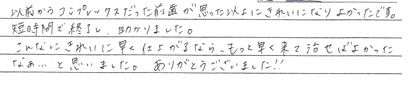 以前からコンプレックスだった前歯が思った以上にきれいになりよかったです。
短時間で終了し、助かりました。
こんなにきれいに早く仕上がるなら、もっと早く来て治せばよかった
なぁ…と思いました。ありがとうございました!!